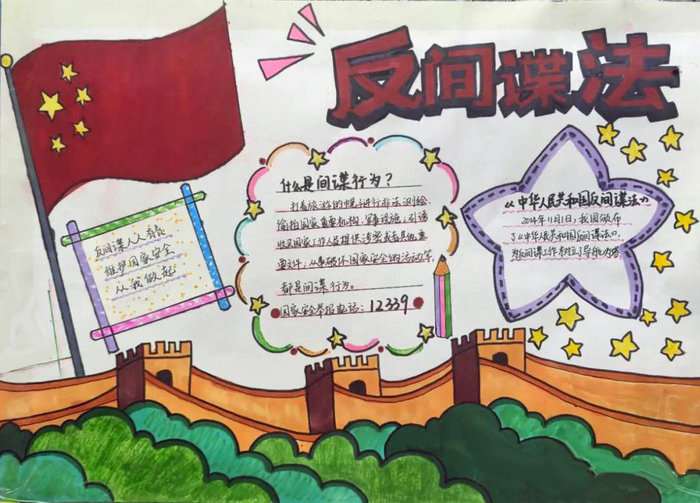 反间谍法
反间谍人人有责
维护国家安全
从我做起
什么是间谍行为？
打着旅游的幌子进行非法测绘,
偷拍国家重要机构、军事设施,引诱
收买国家工作人员提供涉密或者其他重
要文件,从事破坏国家安全的活动等,
都是间谍行为。
国家安全举报电话：12339
《中华人民共和国反间谍法》
2014年11月1日,我国颁布
了《中华人民共和国反间谍法》,
为反间谍工作